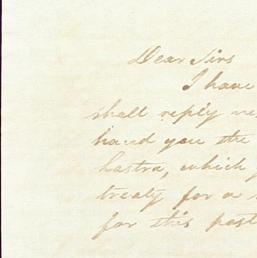 Dear Sirs
I have
shall reply
hand you the
hastra, which
treaty for a
for this post